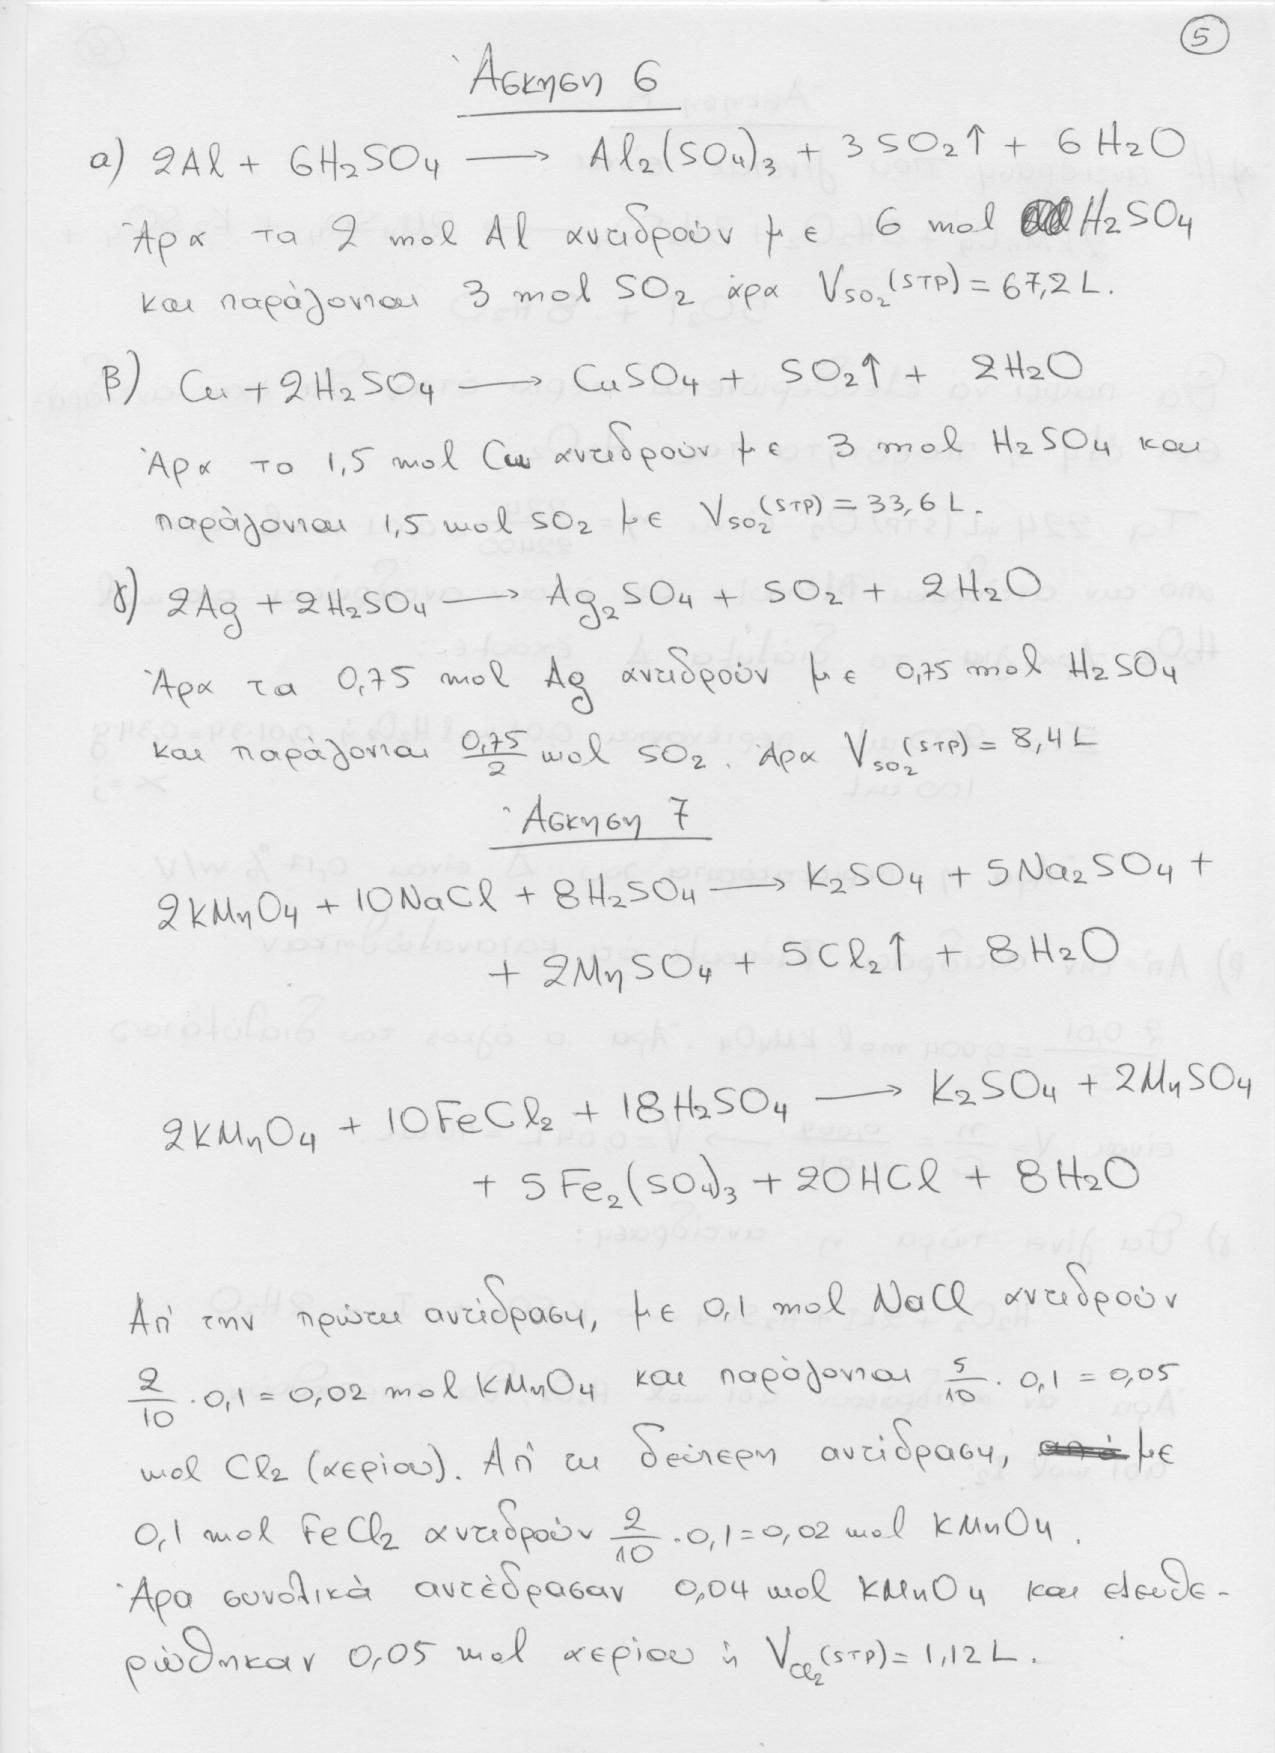 5
Άσκηση 6
α) 2Al + 6H₂SO₄ ⟶ Al₂(SO₄)₃ + 3SO₂↑ + 6H₂O
Άρα τα 2 mol Al αντιδρούν με 6 mol H₂SO₄
και παράγονται 3 mol SO₂ άρα V_SO₂(STP) = 67,2 L.
β) Cu + 2H₂SO₄ ⟶ CuSO₄ + SO₂↑ + 2H₂O
Άρα το 1,5 mol Cu αντιδρούν με 3 mol H₂SO₄ και
παράγονται 1,5 mol SO₂ με V_SO₂(STP) = 33,6 L.
γ) 2Ag + 2H₂SO₄ ⟶ Ag₂SO₄ + SO₂ + 2H₂O
Άρα τα 0,75 mol Ag αντιδρούν με 0,75 mol H₂SO₄
και παράγονται 0,75/2 mol SO₂. Άρα V_SO₂(STP) = 8,4 L
Άσκηση 7
2KMnO₄ + 10NaCl + 8H₂SO₄ ⟶ K₂SO₄ + 5Na₂SO₄ +
+ 2MnSO₄ + 5Cl₂↑ + 8H₂O
2KMnO₄ + 10FeCl₂ + 18H₂SO₄ ⟶ K₂SO₄ + 2MnSO₄
+ 5Fe₂(SO₄)₃ + 20HCl + 8H₂O
Απ' την πρώτη αντίδραση, με 0,1 mol NaCl αντιδρούν
2/10 · 0,1 = 0,02 mol KMnO₄ και παράγονται 5/10 · 0,1 = 0,05
mol Cl₂ (αερίου). Απ' τη δεύτερη αντίδραση, με
0,1 mol FeCl₂ αντιδρούν 2/10 · 0,1 = 0,02 mol KMnO₄.
Άρα συνολικά αντέδρασαν 0,04 mol KMnO₄ και ελευθε-
ρώθηκαν 0,05 mol αερίου ή V_Cl₂(STP) = 1,12 L.